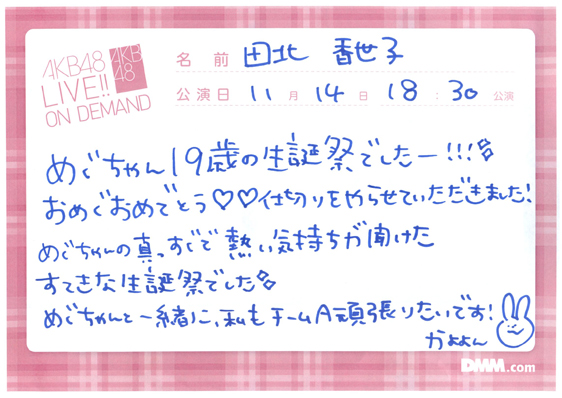 AKB48
LIVE!!
ON DEMAND
AKB
48
名 前 田北 香世子
公演日 11月14日 18:30 公演
めぐちゃん19歳の生誕祭でしたー!!!
おめぐおめでとう♡♡仕切りをやらせていただきました!
めぐちゃんの真っすぐで熱い気持ちが聞けた
すてきな生誕祭でした
めぐちゃんと一緒に、私もチームA頑張りたいです!
かよよん
DMM.com